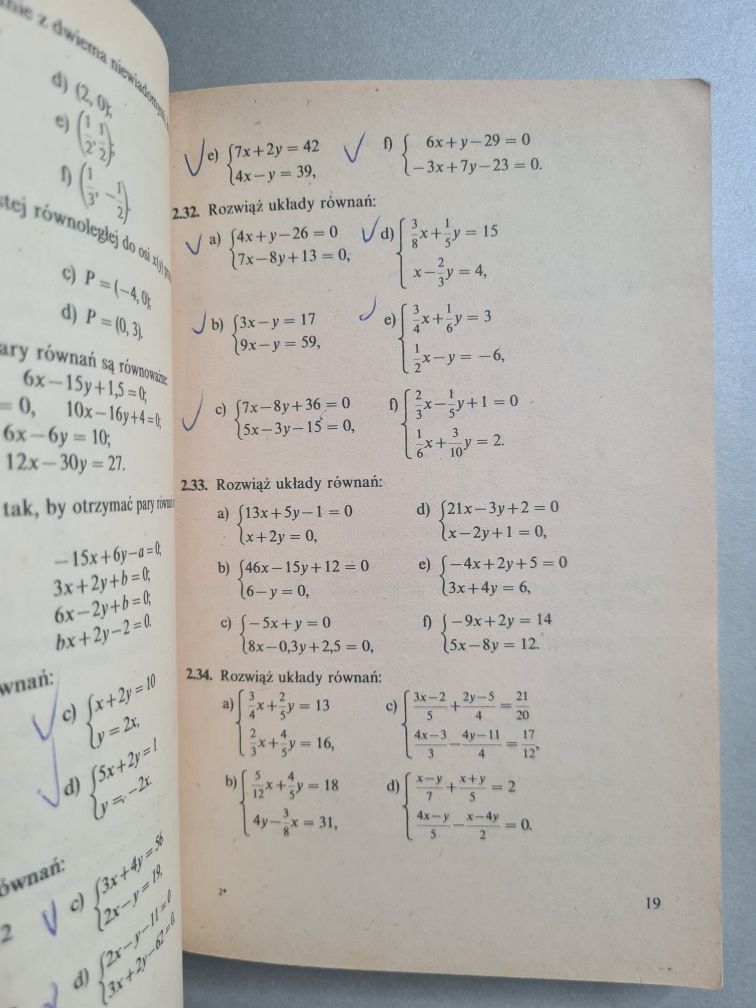 d) (2, 0);
e) (1/2, 1/2);
f) (1/3, −1/2).
równoległej do osi x(y)
c) P = (−4, 0);
d) P = (0, 3).
pary równań są równoważne
6x−15y+1,5 = 0;
= 0, 10x−16y+4 = 0;
6x−6y = 10;
12x−30y = 27.
tak, by otrzymać pary
−15x+6y−a = 0;
3x+2y+b = 0;
6x−2y+b = 0;
bx+2y−2 = 0.
c) {x+2y = 10
y = 2x,
d) {5x+2y = 1
y = −2x.
c) {3x+4y = 56
2x−y = 19,
2
d) {2x−y−11 = 0
3x+2y−62 = 0.
e) {7x+2y = 42
4x−y = 39,
f) {6x+y−29 = 0
−3x+7y−23 = 0.
2.32. Rozwiąż układy równań:
a) {4x+y−26 = 0
7x−8y+13 = 0,
d) {3/8x+1/5y = 15
x−2/3y = 4,
b) {3x−y = 17
9x−y = 59,
e) {3/4x+1/6y = 3
1/2x−y = −6,
c) {7x−8y+36 = 0
5x−3y−15 = 0,
f) {2/3x−1/5y+1 = 0
1/6x+3/10y = 2.
2.33. Rozwiąż układy równań:
a) {13x+5y−1 = 0
x+2y = 0,
d) {21x−3y+2 = 0
x−2y+1 = 0,
b) {46x−15y+12 = 0
6−y = 0,
e) {−4x+2y+5 = 0
3x+4y = 6,
c) {−5x+y = 0
8x−0,3y+2,5 = 0,
f) {−9x+2y = 14
5x−8y = 12.
2.34. Rozwiąż układy równań:
a) {3/4x+2/5y = 13
2/3x+4/5y = 16,
c) {3x−2/5+2y−5/4 = 21/20
4x−3/3−4y−11/4 = 17/12,
b) {5/12x+4/5y = 18
4y−3/8x = 31,
d) {x−y/7+x+y/5 = 2
4x−y/5−x−4y/2 = 0.
2*
19